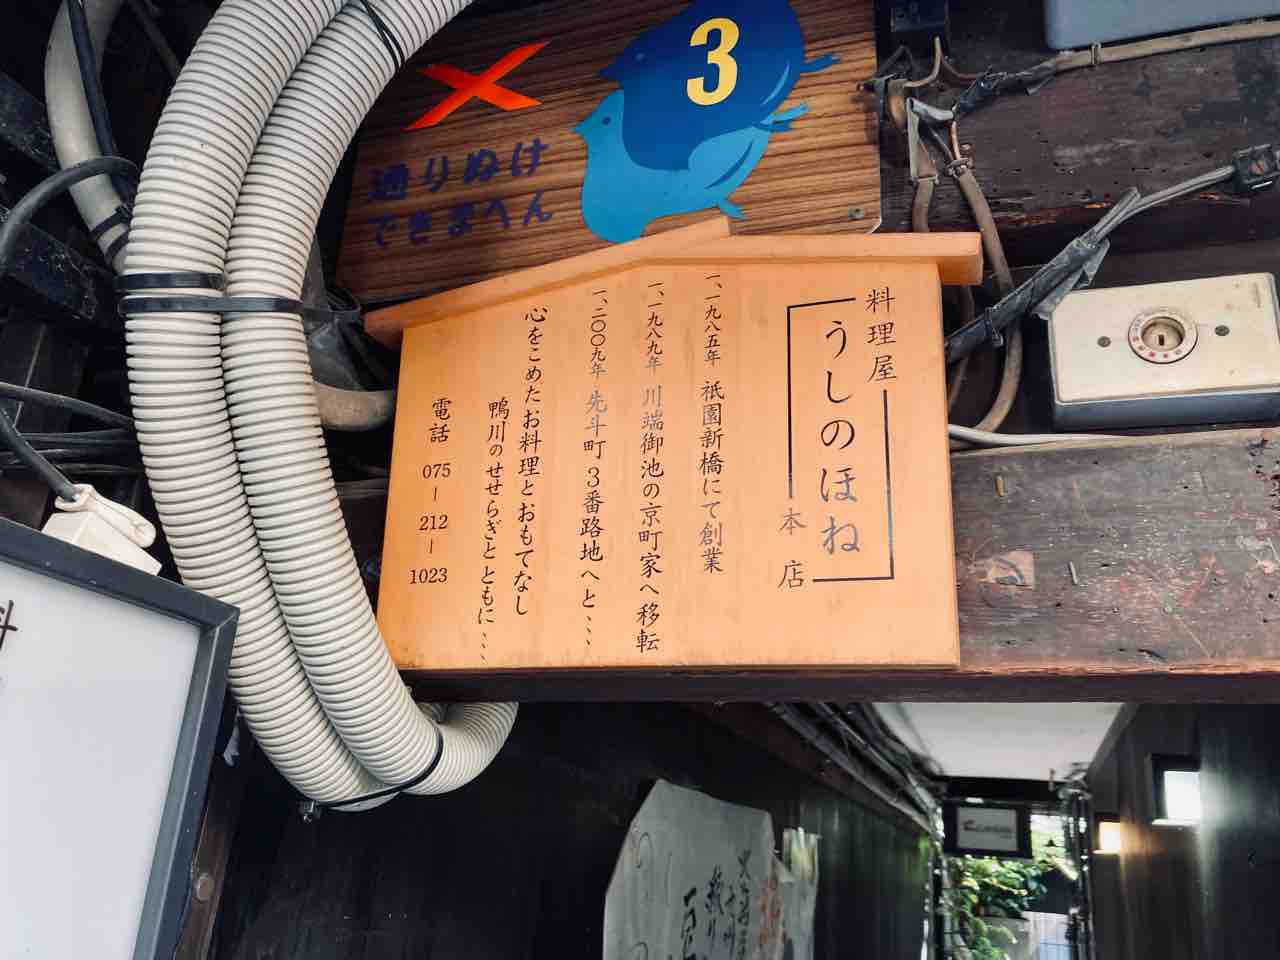 3
通りぬけ
できまへん
料理屋
うしのほね
本店
一、一九八五年 祇園新橋にて創業
一、一九八九年 川端御池の京町家へ移転
一、二〇〇九年 先斗町３番路地へと、、、
心をこめたお料理とおもてなし
鴨川のせせらぎとともに、、、
電話 075-212-1023
料